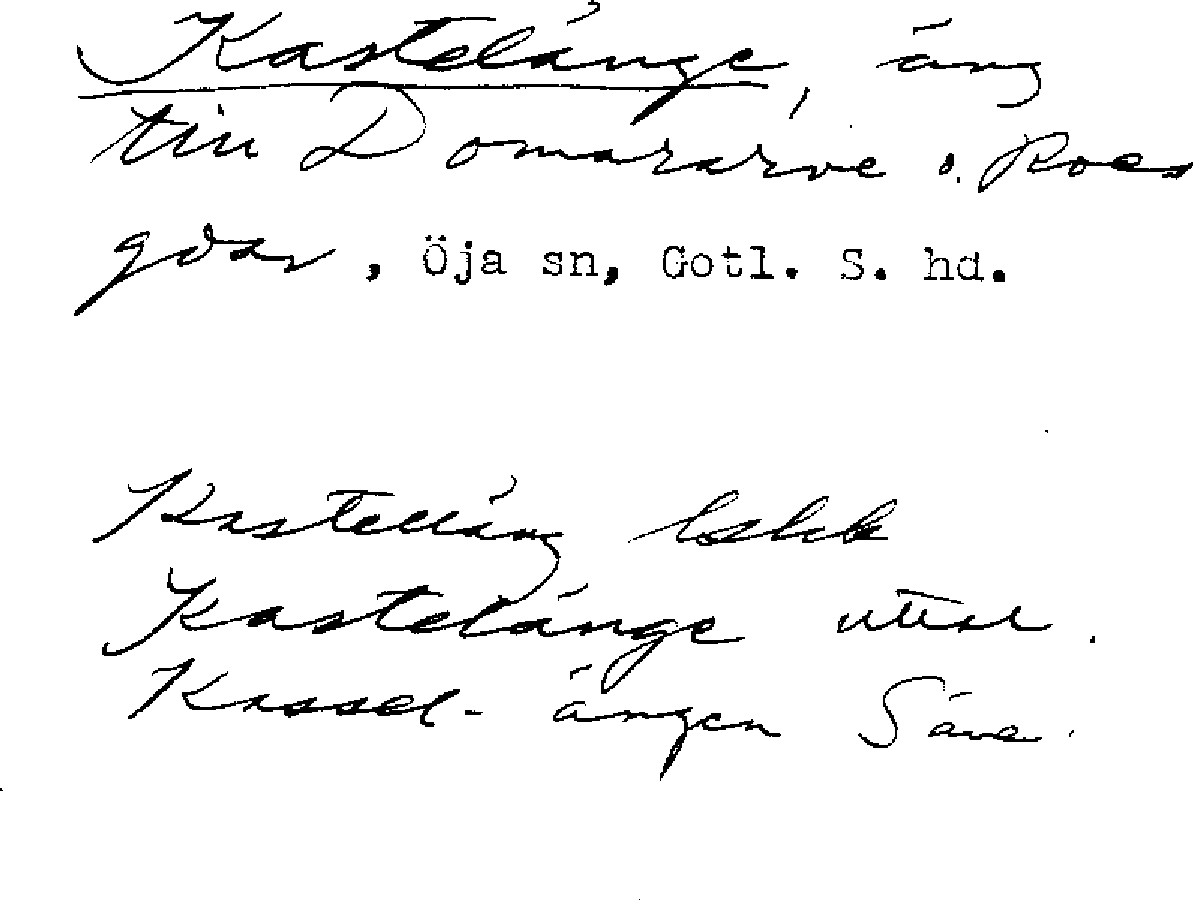 Kastelänge, äng
till Domararve o. Roes
gdar, Öja sn, Gotl. S. hd.
Kastelläng lskk
Kastelänge uttal.
Kassel-ängen Säve.